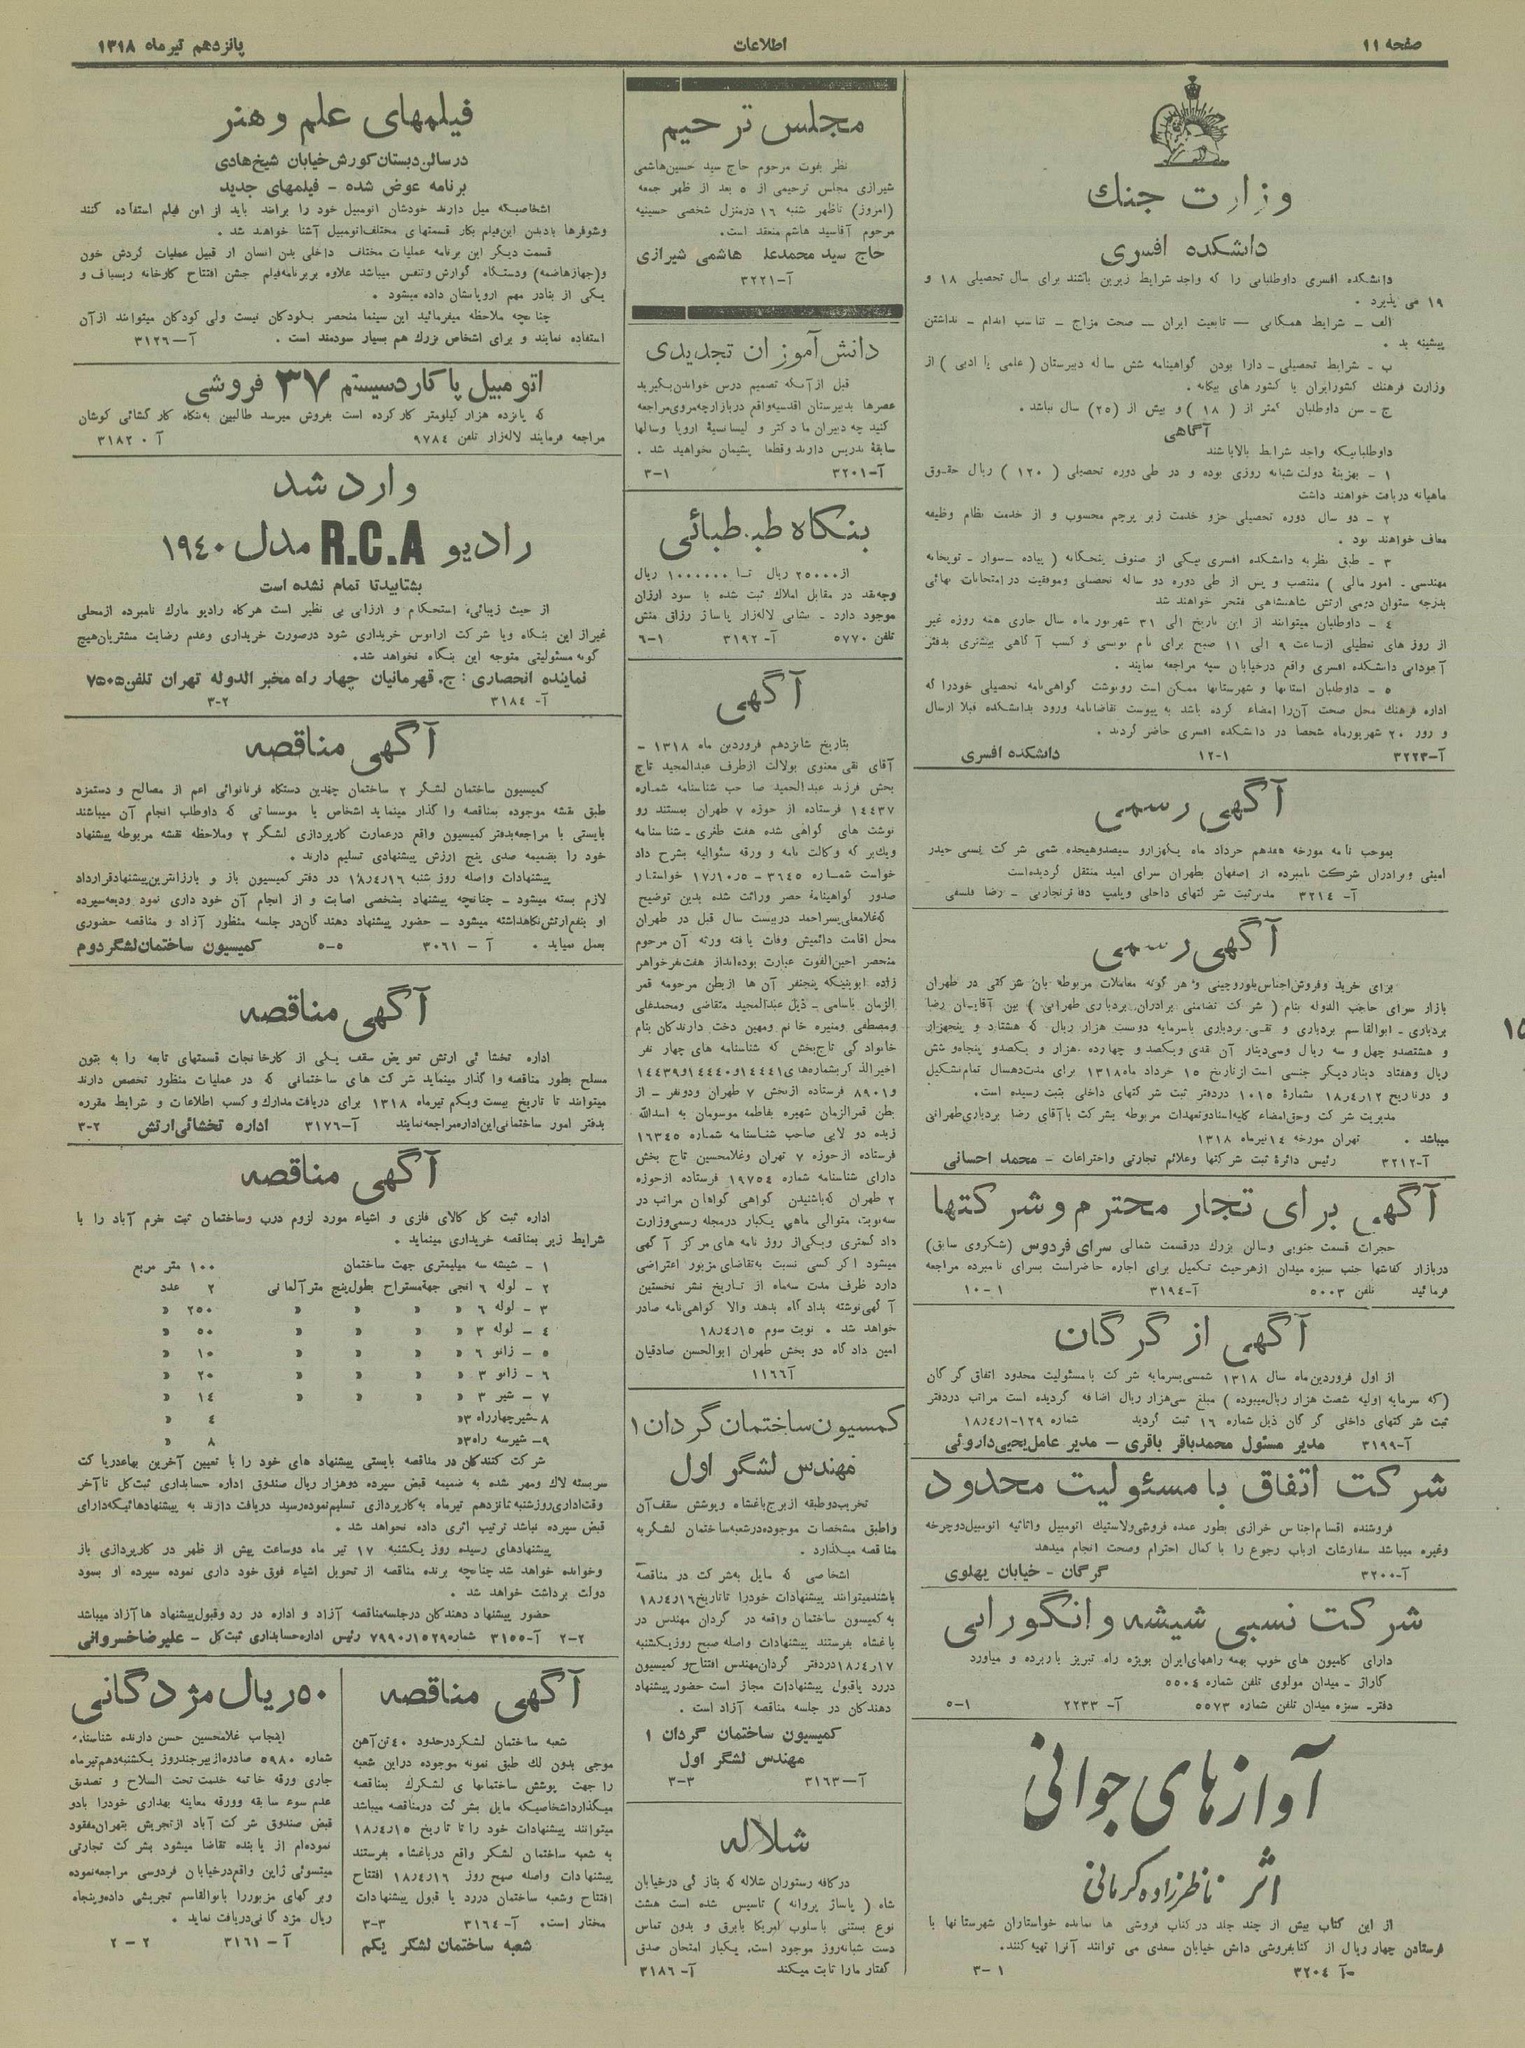 صفحه ۱۱
اطلاعات
پانزدهم تیر ماه ۱۳۱۸
وزارت جنك
دانشکده افسری
دانشکده افسری داوطلبانی را که واجد شرایط زیرین باشند برای سال تحصیلی ۱۸ و
۱۹ می پذیرد .
الف - شرایط همگانی — تابعیت ایران — صحت مزاج - تناسب اندام - نداشتن
پیشینه بد .
ب - شرایط تحصیلی - دارا بودن گواهینامه شش ساله دبیرستان ( علمی یا ادبی ) از
وزارت فرهنك کشور ایران یا کشور های بیگانه .
ج - سن داوطلبان کمتر از ( ۱۸ ) و بیش از (۲۵) سال نباشد .
آگاهی
داوطلبانیکه واجد شرایط بالا باشند
۱ - بهزینهٔ دولت شبانه روزی بوده و در طی دوره تحصیلی ( ۱۲۰ ) ریال حقوق
ماهیانه دریافت خواهند داشت
۲ - دو سال دوره تحصیلی جزو خدمت زیر پرچم محسوب و از خدمت نظام وظیفه
معاف خواهند بود .
۳ - طبق نظریه دانشکده افسری بیکی از صنوف پنجگانه ( پیاده - سوار - توپخانه
مهندسی - امور مالی ) منتصب و پس از طی دوره دو ساله تحصیلی وموفقیت در امتحانات نهائی
بدرجه ستوان دومی ارتش شاهنشاهی مفتخر خواهند شد
۴ - داوطلبان میتوانند از این تاریخ الی ۳۱ شهریور ماه سال جاری همه روزه غیر
از روز های تعطیلی از ساعت ۹ الی ۱۱ صبح برای نام نویسی و کسب آگاهی بیشتری بدفتر
آجودانی دانشکده افسری واقع در خیابان سپه مراجعه نمایند .
۵ - داوطلبان استانها و شهرستانها ممکن است رونوشت گواهی نامه تحصیلی خود را که
اداره فرهنك محل صحت آن را امضاء کرده باشد به پیوست تقاضانامه ورود بدانشکده قبلا ارسال
و روز ۲۰ شهریور ماه شخصا در دانشکده افسری حاضر گردند .
آ-۳۲۲۳ ۱-۱۲ دانشکده افسری
آگهی رسمی
بموجب نامه مورخه هفدهم خرداد ماه یکهزارو سیصدوهیجده شمسی شرکت نسبی حیدر
امینی و برادران شرکت نامبرده از اصفهان بطهران سرای امید منتقل گردیده است
آ- ۳۲۱۴ مدیر ثبت شرکتهای داخلی وپلمپ دفاتر تجارتی - رضا فلسفی
آگهی رسمی
برای خرید وفروش اجناس بلوروچینی و هر گونه معاملات مربوطه بان شرکتی در طهران
بازار سرای حاجب الدوله بنام ( شرکت تضامنی برادران بردباری طهرانی ) بین آقایان رضا
بردباری - ابوالقاسم بردباری و تقی بردباری باسرمایه دویست هزار ریال که هشتاد و پنجهزار
و هشتصدو چهل و سه ریال وسی دینار آن نقدی ویکصد و چهارده هزار و یکصدو پنجاه وشش
ریال وهفتاد دینار دیگر جنسی است از تاریخ ۱۵ خرداد ماه ۱۳۱۸ برای مدت ده سال تمام تشکیل
و در تاریخ ۱۸٫۴٫۱۲ بشمارهٔ ۱۰۱۵ در دفتر ثبت شرکتهای داخلی بثبت رسیده است .
مدیریت شرکت وحق امضاء کلیه اسناد وتعهدات مربوطه بشرکت با آقای رضا بردباری طهرانی
میباشد . تهران مورخه ۱۴ تیر ماه ۱۳۱۸
آ-۳۲۱۲ رئیس دائرهٔ ثبت شرکتها وعلائم تجارتی واختراعات - محمد احسانی
آگهی برای تجار محترم و شرکتها
حجرات قسمت جنوبی وسالن بزرك درقسمت شمالی سرای فردوس (شکروی سابق)
در بازار کفاشها جنب سبزه میدان از هر حیث تکمیل برای اجاره حاضراست بسرای نامبرده مراجعه
فرمائید تلفن ۵۰۰۳ آ-۳۱۹۴ ۱-۱۰
آگهی از گرگان
از اول فروردین ماه سال ۱۳۱۸ شمسی بسرمایه شرکت با مسئولیت محدود اتفاق گرگان
(که سرمایه اولیه شصت هزار ریال میبوده ) مبلغ سی هزار ریال اضافه گردیده است مراتب در دفتر
ثبت شرکتهای داخلی گرگان ذیل شماره ۱۶ ثبت گردید شماره ۱۲۹-۱۸٫۴٫۱
آ-۳۱۹۹ مدیر مسئول محمد باقر باقری - مدیر عامل یحیی داروئی
شرکت اتفاق با مسئولیت محدود
فروشنده اقسام اجناس خرازی بطور عمده فروشی ولاستیك اتومبیل واثاثیه اتومبیل دوچرخه
وغیره میباشد سفارشات ارباب رجوع را با کمال احترام وصحت انجام میدهد
آ-۳۲۰۰ گرگان - خیابان پهلوی
شرکت نسبی شیشه و انگورانی
دارای کامیون های خوب بهمه راههای ایران بویژه راه تبریز بار برده و میاورد
گاراژ - میدان مولوی تلفن شماره ۵۵۰۴
دفتر - سبزه میدان تلفن شماره ۵۵۷۳ آ- ۲۲۳۳ ۱-۵
آوازهای جوانی
اثر ناظرزاده کرمانی
از این کتاب بیش از چند جلد در کتاب فروشی ها نمانده خواستاران شهرستانها با
فرستادن چهار ریال از کتابفروشی دانش خیابان سعدی می توانند آنرا تهیه کنند .
آ- ۳۲۰۴ ۱-۳
مجلس ترحیم
نظر بفوت مرحوم حاج سید حسین هاشمی
شیرازی مجلس ترحیمی از ۵ بعد از ظهر جمعه
(امروز) تاظهر شنبه ۱۶ درمنزل شخصی حسینیه
مرحوم آقاسید هاشم منعقد است .
حاج سید محمدعلی هاشمی شیرازی
آ-۳۲۲۱
دانش آموزان تجدیدی
قبل از آنکه تصمیم درس خواندن بگیرید
عصرها بدبیرستان اقدسیه واقع دربازارچه مروی مراجعه
کنید چه دبیران ما دکتر و لیسانسیهٔ اروپا وسالها
سابقهٔ تدریس دارند وقطعا پشیمان نخواهید شد .
آ-۳۲۰۱ ۱-۳
بنگاه طباطبائی
از ۲۵۰۰۰ ریال تا ۱۰۰۰۰۰۰ ریال
وجه نقد در مقابل املاك ثبت شده با سود ارزان
موجود دارد - نشانی لاله زار پاساژ رزاق منش
تلفن ۵۷۷۰ آ-۳۱۹۲ ۱-۶
آگهی
بتاریخ شانزدهم فروردین ماه ۱۳۱۸ -
آقای تقی معنوی بوکالت از طرف عبدالمجید تاج
بخش فرزند عبدالحمید صاحب شناسنامه شماره
۱۴۴۳۷ فرستاده از حوزه ۷ طهران بمستند رو
نوشت های گواهی شده هفت طغری - شناسنامه
ویك برك وکالت نامه و ورقه سئوالیه بشرح داد
خواست شماره ۳۶۴۵ - ۱۷٫۱۰٫۵ خواستار
صدور گواهینامهٔ حصر وراثت شده بدین توضیح
که غلامعلی پسر احمد دربیست سال قبل در طهران
محل اقامت دائمیش وفات یافته ورثه آن مرحوم
منحصر احین الفوت عبارت بوده انداز هفت نفر خواهر
زاده ابوینیکه پنجنفر آن ها از بطن مرحومه قمر
الزمان باسامی - ذیل عبدالمجید متقاضی ومحمدعلی
ومصطفی ومنیره خانم ومهین دخت دارندکان بنام
خانوادگی تاج بخش که شناسنامه های چهار نفر
اخیرالذکر بشماره های ۱۴۴۴۱و۱۴۴۴۰و۱۴۴۳۹
و۸۹۰۱ فرستاده از بخش ۷ طهران ودونفر - از
بطن قمرالزمان شهیره بفاطمه موسومان به اسدالله
زبده دولابی صاحب شناسنامه شماره ۱۶۳۴۵
فرستاده از حوزه ۷ تهران وغلامحسین تاج بخش
دارای شناسنامه شماره ۱۹۷۵۴ فرستاده از حوزه
۲ طهران که باشنیدن گواهی گواهان مراتب در
سه نوبت متوالی ماهی یکبار در مجله رسمی وزارت
دادگستری ویکی از روز نامه های مرکز آگهی
میشود اگر کسی نسبت به تقاضای مزبور اعتراضی
دارد ظرف مدت سه ماه از تاریخ نشر نخستین
آگهی نوشته بدادگاه بدهد والا گواهی نامه صادر
خواهد شد . نوبت سوم ۱۸٫۴٫۱۵
امین دادگاه دو بخش طهران ابوالحسن صادقیان
آ ۱۱۶۶
کمسیون ساختمان گردان ۱
مهندس لشگر اول
تخریب دوطبقه از برج باغشاه وپوشش سقف آن
را طبق مشخصات موجوده درشعبه ساختمان لشگر به
مناقصه میگذارد .
اشخاصی که مایل به شرکت در مناقصه
باشند میتوانند پیشنهادات خود را تا تاریخ ۱۸٫۴٫۱۶
به کمیسون ساختمان واقعه در گردان مهندس در
باغشاه بفرستند پیشنهادات واصله صبح روز یکشنبه
۱۸٫۴٫۱۷ در دفتر گردان مهندس افتتاح و کمیسیون
در رد یا قبول پیشنهادات مجاز است حضور پیشنهاد
دهندکان در جلسه مناقصه آزاد است .
کمیسیون ساختمان گردان ۱
مهندس لشگر اول
آ-۳۱۶۳ ۳-۳
شلاله
در کافه رستوران شلاله که بتازگی درخیابان
شاه ( پاساژ پروانه ) تاسیس شده است هشت
نوع بستنی باسلوب امریکا بابرق و بدون تماس
دست شبانه روز موجود است . یکبار امتحان صدق
گفتار مارا ثابت میکند آ- ۳۱۸۶
فیلمهای علم و هنر
درسالن دبستان کورش خیابان شیخ هادی
برنامه عوض شده - فیلمهای جدید
اشخاصیکه میل دارند خودشان اتومبیل خود را برانند باید از این فیلم استفاده کنند
وشوفرها بادیدن این فیلم بکار قسمتهای مختلف اتومبیل آشنا خواهند شد .
قسمت دیگر این برنامه عملیات مختلف داخلی بدن انسان از قبیل عملیات گردش خون
و(جهاز هاضمه) ودستگاه گوارش وتنفس میباشد علاوه بر برنامه فیلم جشن افتتاح کارخانه ریسباف و
یکی از بنادر مهم اروپا نشان داده میشود .
چنانچه ملاحظه میفرمائید این سینما منحصر بکودکان نیست ولی کودکان میتوانند از آن
استفاده نمایند و برای اشخاص بزرك هم بسیار سودمند است . آ-۳۱۲۶
اتومبیل پاکارد سیستم ۳۷ فروشی
که پانزده هزار کیلومتر کار کرده است بفروش میرسد طالبین به بنگاه کار گشائی کوشان
مراجعه فرمایند لاله زار تلفن ۹۷۸۴ آ-۳۱۸۲
وارد شد
رادیو R.C.A مدل ۱۹۴۰
بشتابید تا تمام نشده است
از حیث زیبائی، استحکام و ارزانی بی نظیر است هرگاه رادیو مارك نامبرده از محلی
غیر از این بنگاه ویا شرکت اراتوس خریداری شود درصورت خریداری وعدم رضایت مشتریان هیچ
گونه مسئولیتی متوجه این بنگاه نخواهد شد .
نماینده انحصاری : ج. قهرمانیان چهار راه مخبر الدوله تهران تلفن ۷۵۰۵
آ- ۳۱۸۴ ۲-۳
آگهی مناقصه
کمیسیون ساختمان لشگر ۲ ساختمان چندین دستگاه فرنانوائی اعم از مصالح و دستمزد
طبق نقشه موجوده بمناقصه واگذار مینماید اشخاص یا موسساتی که داوطلب انجام آن میباشند
بایستی با مراجعه بدفتر کمیسیون واقع درعمارت کارپردازی لشگر ۲ وملاحظه نقشه مربوطه پیشنهاد
خود را بضمیمه صدی پنج ارزش پیشنهادی تسلیم دارند .
پیشنهادات واصله روز شنبه ۱۸٫۴٫۱۶ در دفتر کمیسیون باز و بارزانترین پیشنهاد قرارداد
لازم بسته میشود - چنانچه پیشنهاد بشخصی اصابت و از انجام آن خود داری نمود ودیعه سپرده
او بنفع ارتش نگاهداشته میشود - حضور پیشنهاد دهندگان در جلسه منظور آزاد و مناقصه حضوری
بعمل نمیاید . آ - ۳۰۶۱ ۵-۵ کمیسیون ساختمان لشگر دوم
آگهی مناقصه
اداره تخشائی ارتش تعویض سقف یکی از کارخانجات قسمتهای تابعه را به بتون
مسلح بطور مناقصه واگذار مینماید شرکت های ساختمانی که در عملیات منظور تخصص دارند
میتوانند تا تاریخ بیست ویکم تیرماه ۱۳۱۸ برای دریافت مدارك و کسب اطلاعات و شرایط مقرره
بدفتر امور ساختمانی این اداره مراجعه نمایند آ-۳۱۷۶ اداره تخشائی ارتش ۲-۳
آگهی مناقصه
اداره ثبت کل کالای فلزی و اشیاء مورد لزوم درب وساختمان ثبت خرم آباد را با
شرایط زیر بمناقصه خریداری مینماید .
۱ - شیشه سه میلیمتری جهت ساختمان ۱۰۰ متر مربع
۲ - لوله ۶ انچی جهة مستراح بطول پنج متر آلمانی ۲ عدد
۳ - لوله ۶ » » » » » ۲۵۰ »
۴ - لوله ۳ » » » » » ۵۰ »
۵ - زانو ۶ » » » » » ۱۰ »
۶ - زانو ۳ » » » » » ۲۰ »
۷ - شیر ۳ » » » » » ۱۴ »
۸ - شیر چهارراه ۳» ۴ »
۹ - شیر سه راه ۳» ۸ »
شرکت کنندکان در مناقصه بایستی پیشنهاد های خود را با تعیین آخرین بهاء در پاکت
سربسته لاك ومهر شده به ضمیمه قبض سپرده دوهزار ریال صندوق اداره حسابداری ثبت کل تاآخر
وقت اداری روز شنبه شانزدهم تیر ماه به کارپردازی تسلیم نموده رسید دریافت دارند به پیشنهادهائیکه دارای
قبض سپرده نباشد ترتیب اثری داده نخواهد شد .
پیشنهادهای رسیده روز یکشنبه ۱۷ تیر ماه دوساعت پیش از ظهر در کارپردازی باز
وخوانده خواهد شد چنانچه برنده مناقصه از تحویل اشیاء فوق خود داری نموده سپرده او بسود
دولت برداشت خواهد شد .
حضور پیشنهاد دهندکان در جلسه مناقصه آزاد و اداره در رد وقبول پیشنهاد ها آزاد میباشد
۲-۲ آ-۳۱۵۵ شماره ۷۹۹۰٫۱۵۲۹ رئیس اداره حسابداری ثبت کل - علیرضا خسروانی
آگهی مناقصه
شعبه ساختمان لشکر درحدود ۴۰ تن آهن
موجی بدون لك طبق نمونه موجوده دراین شعبه
را جهت پوشش ساختمانهای لشکرك بمناقصه
میگذارد اشخاصیکه مایل بشرکت درمناقصه میباشد
میتوانند پیشنهادات خود را تا تاریخ ۱۸٫۴٫۱۵
به شعبه ساختمان لشکر واقع درباغشاه بفرستند
پیشنهادات واصله صبح روز ۱۸٫۴٫۱۶ افتتاح
افتتاح وشعبه ساختمان دررد یا قبول پیشنهادات
مختار است . آ-۳۱۶۴ ۳-۳
شعبه ساختمان لشکر یکم
۵۰ ریال مژدگانی
اینجانب غلامحسین حسن دارنده شناسنامه
شماره ۵۹۸۰ صادره از بیرجند روز یکشنبه دهم تیر ماه
جاری ورقه خاتمه خدمت تحت السلاح و تصدیق
عدم سوء سابقه وورقه معاینه بهداری خود را بادو
قبض صندوق شرکت آباد از تجریش بتهران مفقود
نموده ام از یابنده تقاضا میشود بشرکت تجارتی
میتسوئی ژاپن واقع درخیابان فردوسی مراجعه نموده
وبرگهای مزبوررا بابوالقاسم تجریشی داده وپنجاه
ریال مژدگانی دریافت نماید .
آ - ۳۱۶۱ ۲-۲